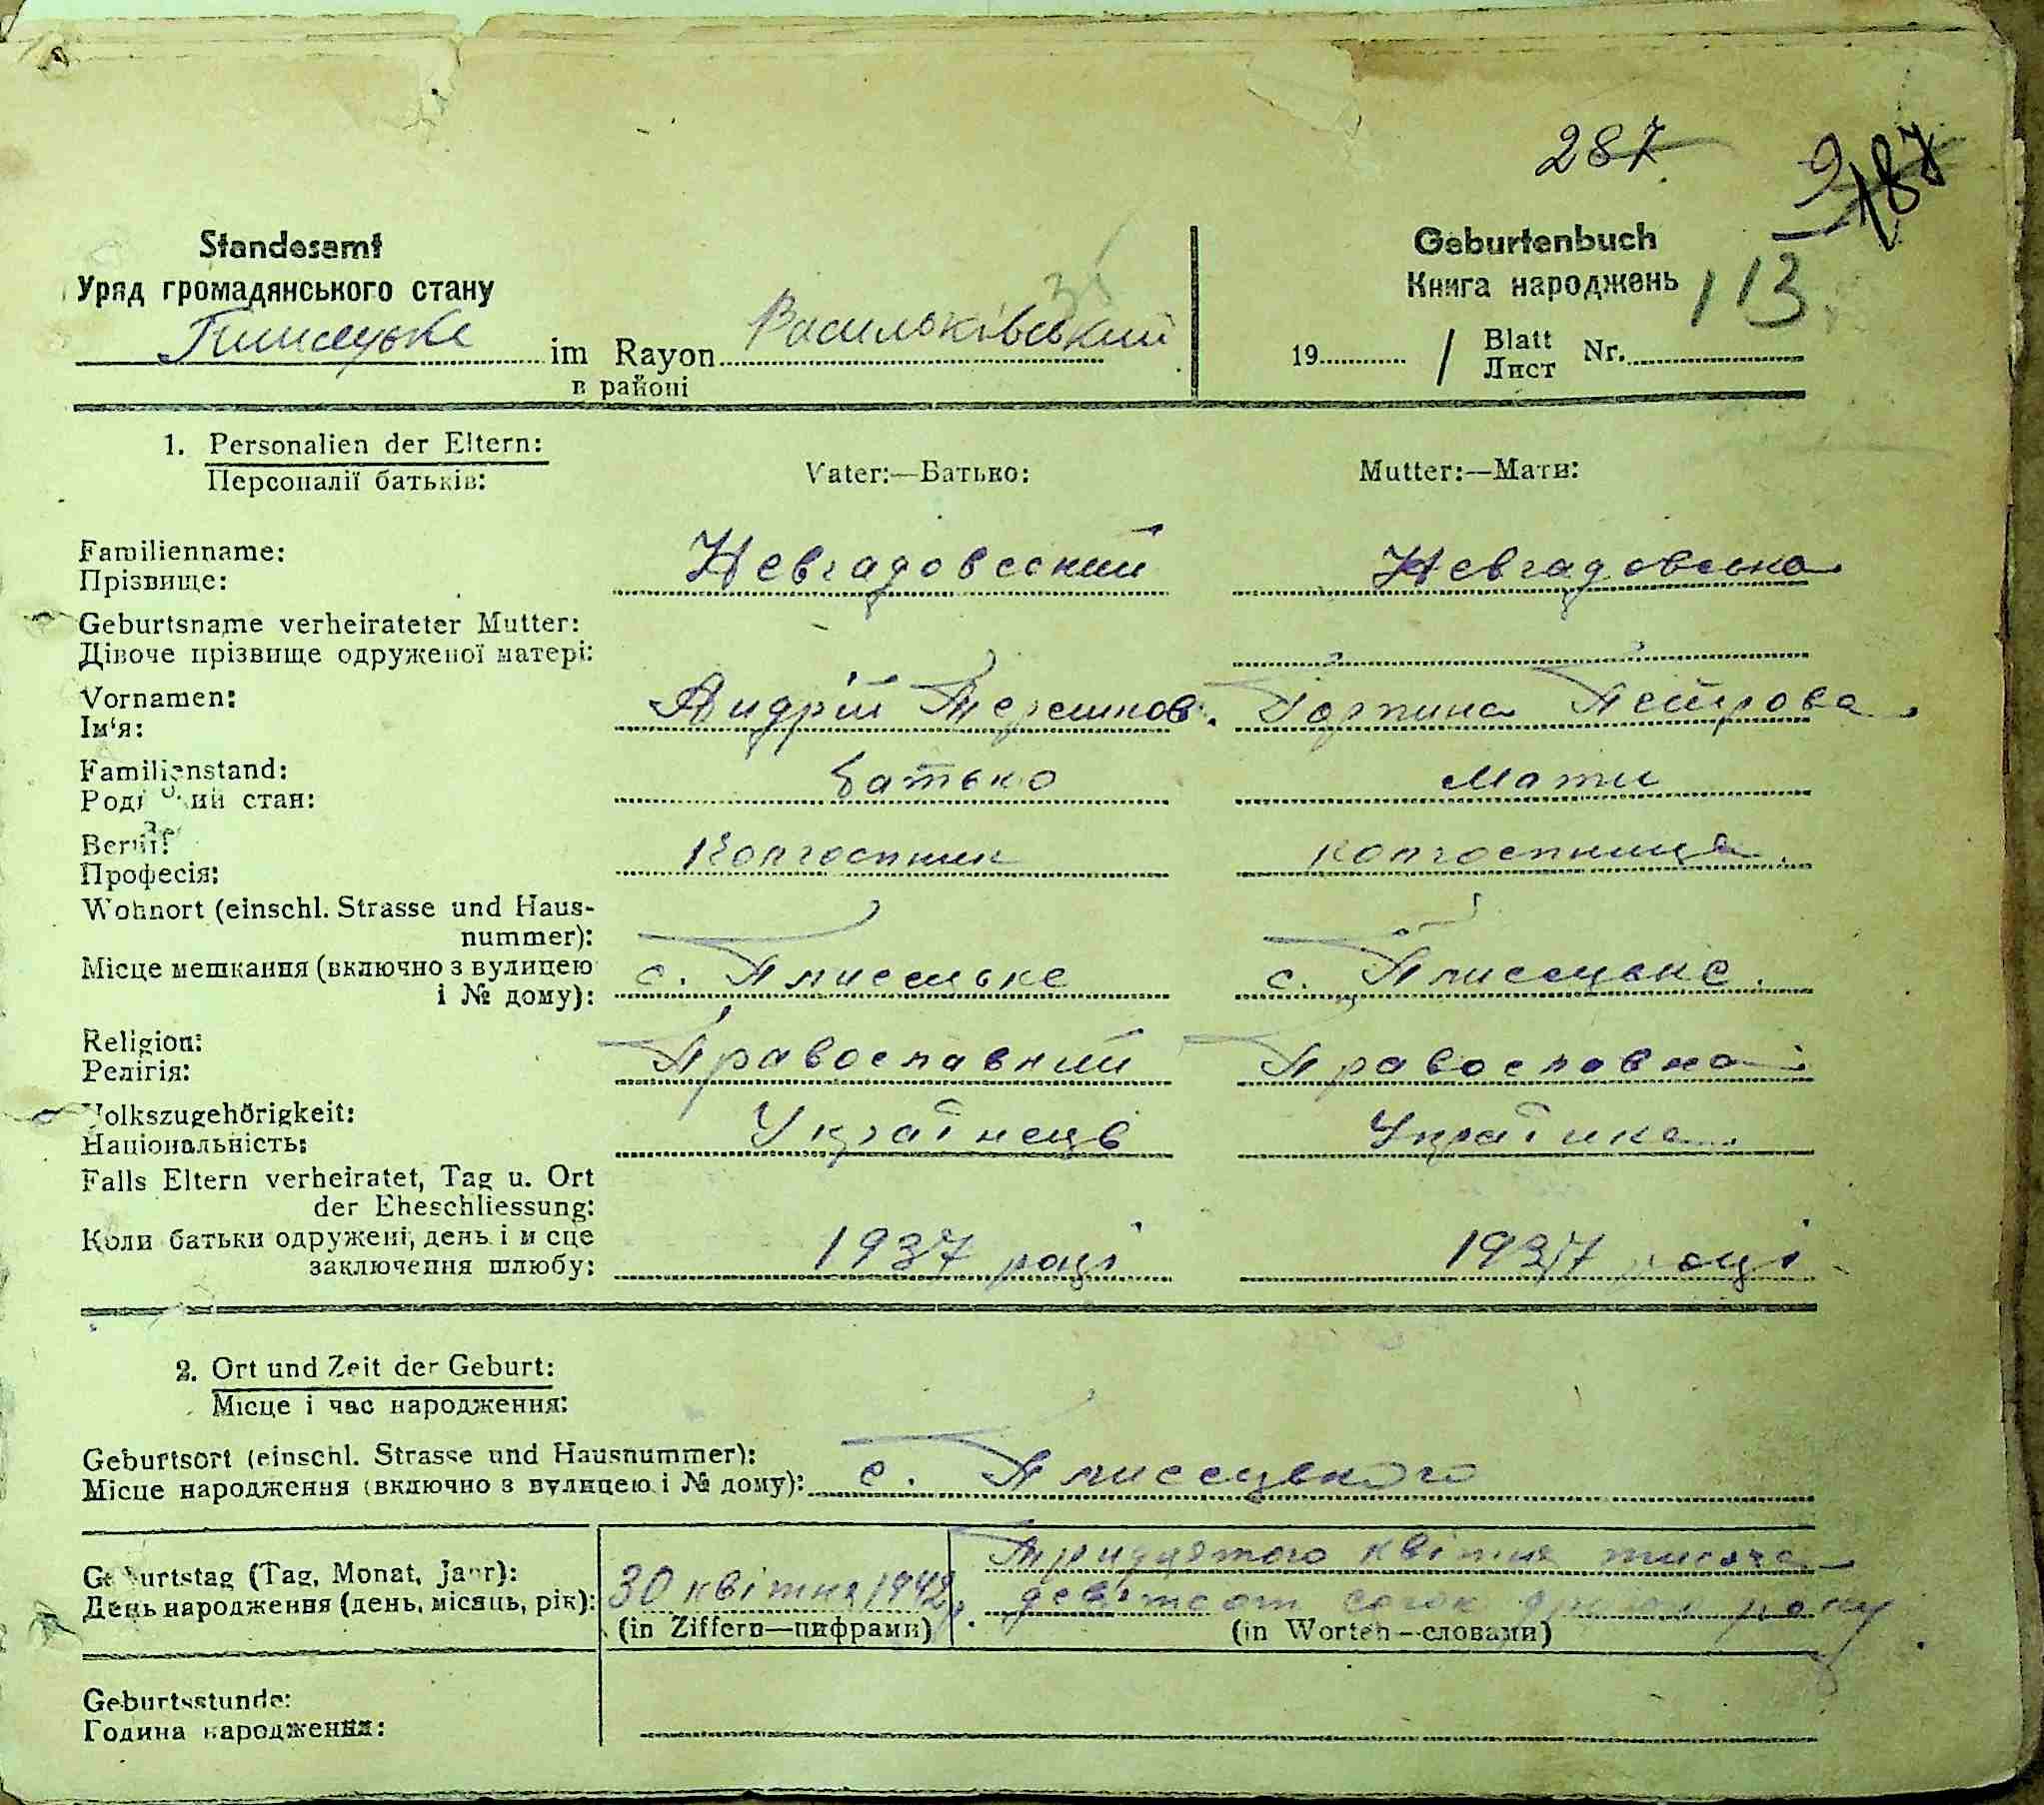 287
187
Standesamt
Уряд громадянського стану
Geburtenbuch
Книга народжень 113
Плисецьке im Rayon Васильківський
в районі
19 / Blatt Nr.
Лист
1. Personalien der Eltern:
Персоналії батьків:
Vater:—Батько: Mutter:—Мати:
Familienname:
Прізвище: Невгадовский Невгадовська
Geburtsname verheirateter Mutter:
Дівоче прізвище одруженої матері:
Vornamen:
Ім‘я: Андрій Терешков. Горпина Петрова
Familienstand:
стан: батько Мати
Beruf:
Професія: Колгоспник колгоспниця
Wohnort (einschl. Strasse und Haus-
nummer):
Місце мешкання (включно з вулицею
і № дому): с. Плисецьке с. Плисецьке.
Religion:
Релігія: Православний Православна
Volkszugehörigkeit:
Національність: Українець Українка
Falls Eltern verheiratet, Tag u. Ort
der Eheschliessung:
Коли батьки одружені, день і м сце
заключення шлюбу: 1937 році 1937 році
2. Ort und Zeit der Geburt:
Місце і час народження:
Geburtsort (einschl. Strasse und Hausnummer):
Місце народження (включно з вулицею і № дому): с. Плисецького
Geburtstag (Tag, Monat, Jahr):
День народження (день, місяць, рік): 30 квітня 1942
(in Ziffern—цифрами)
Тридцятого квітня тисяча
девятсот сорок другого року
(in Worten—словами)
Geburtsstunde:
Година народження: